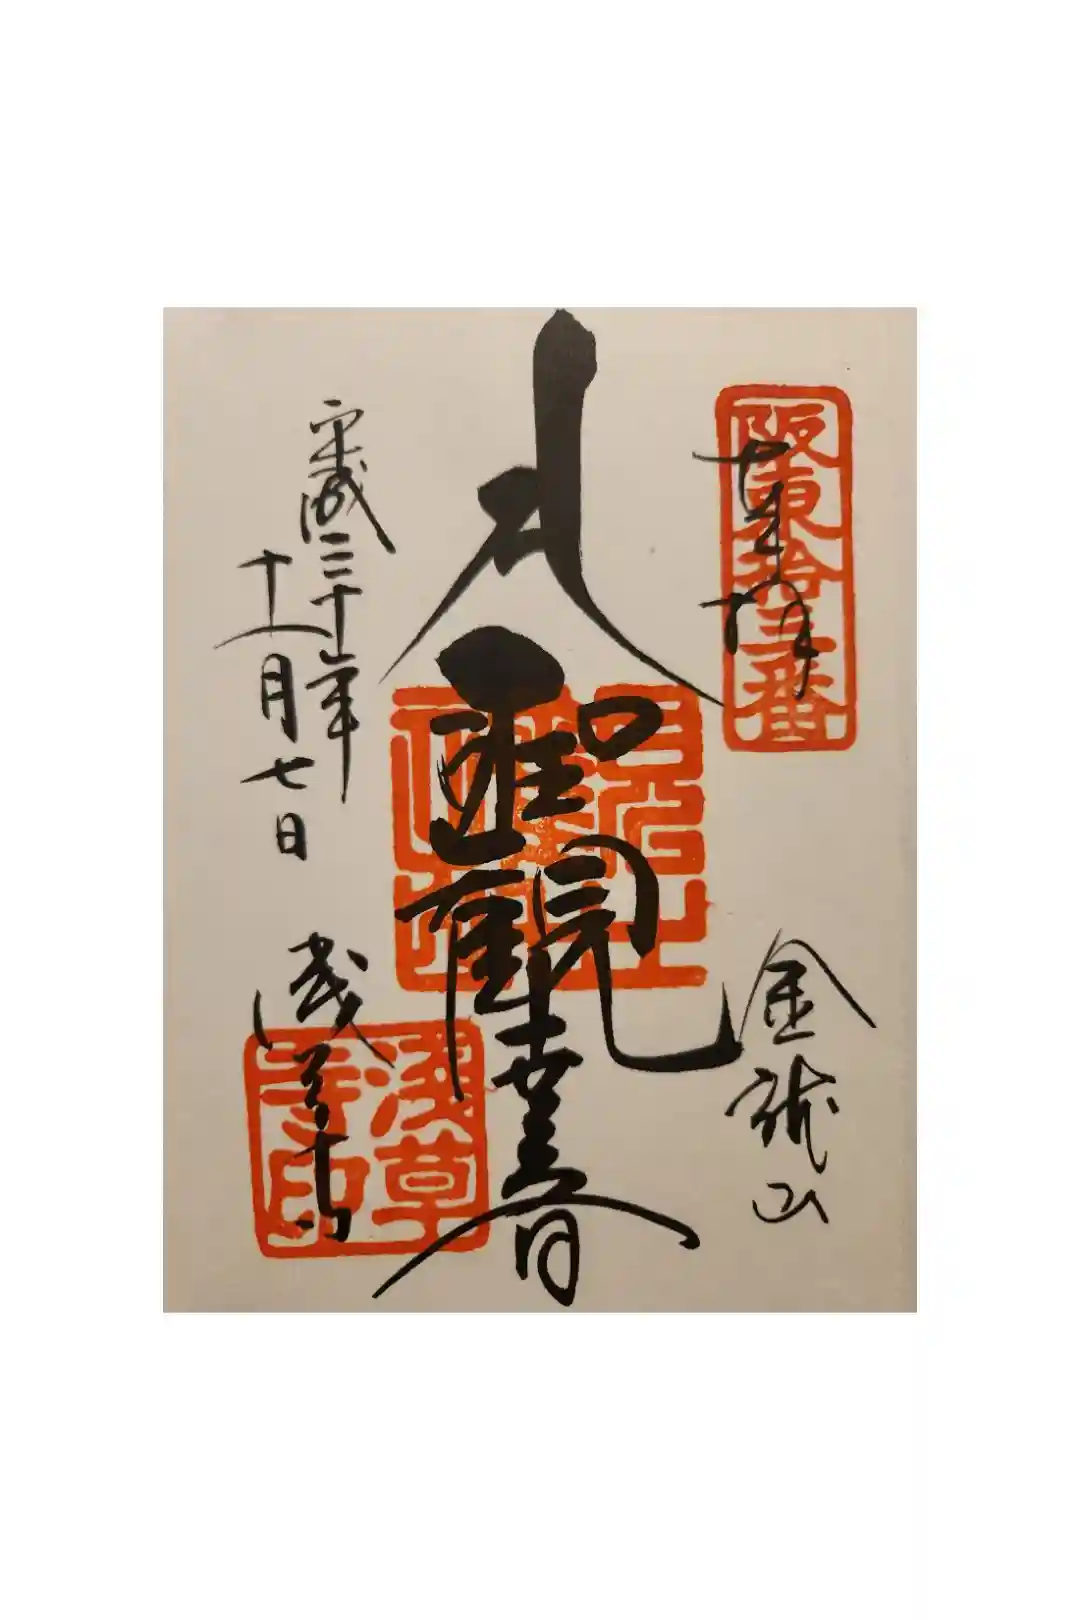 阪東拾三番
奉拝
金龍山
聖観世音
平成三十年
十一月七日
浅草寺
淺草寺印